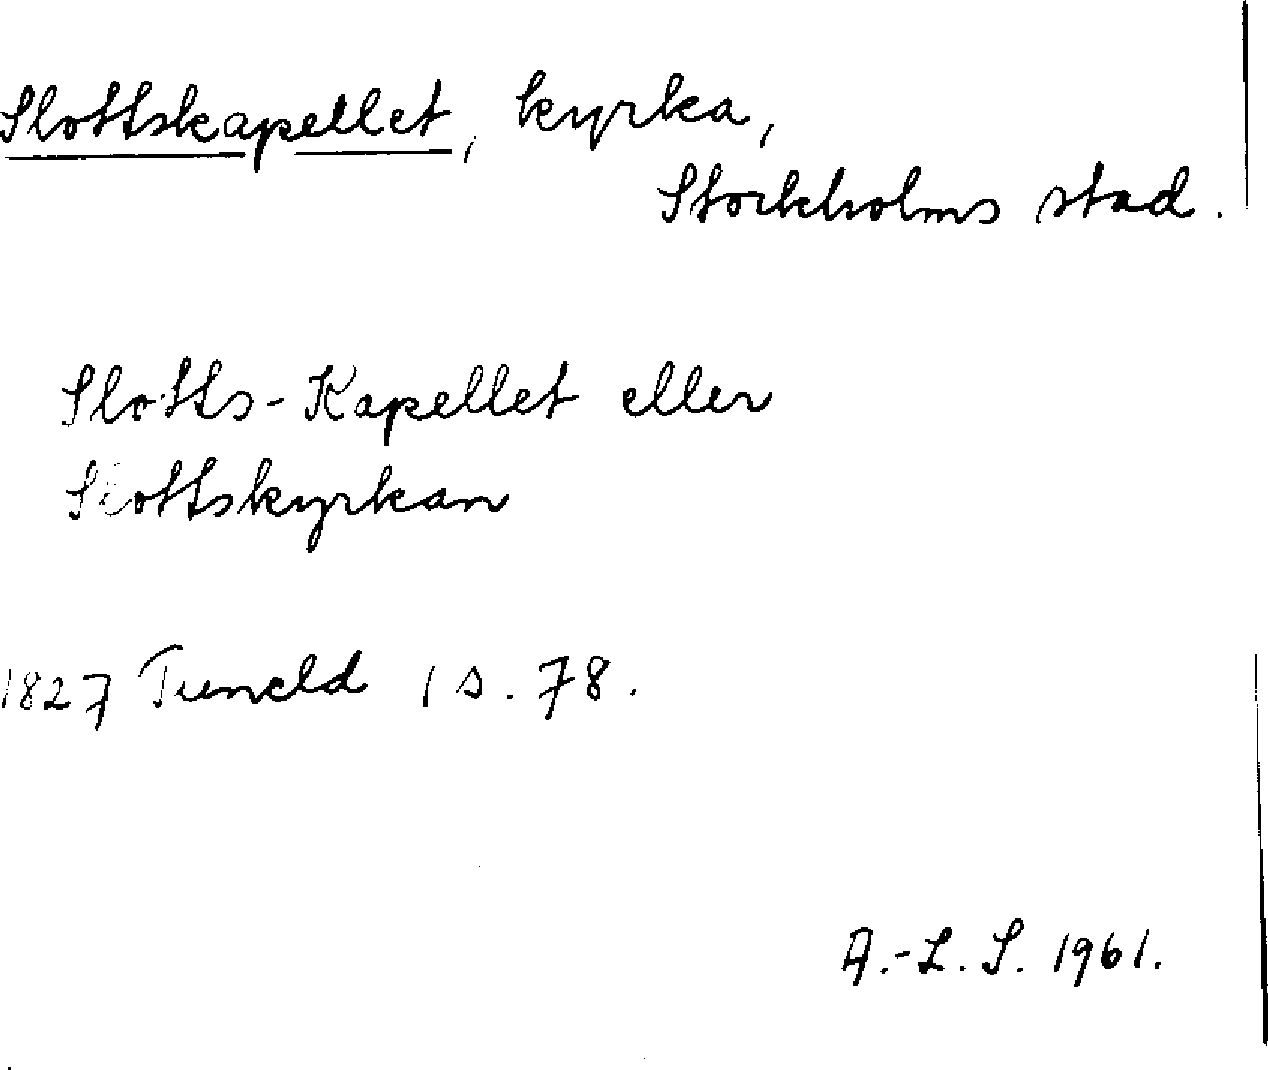 Slottskapellet, kyrka,
Stockholms stad.
Slotts-Kapellet eller
Slottskyrkan
1827 Tuneld 1 s. 78.
A.-L. S. 1961.